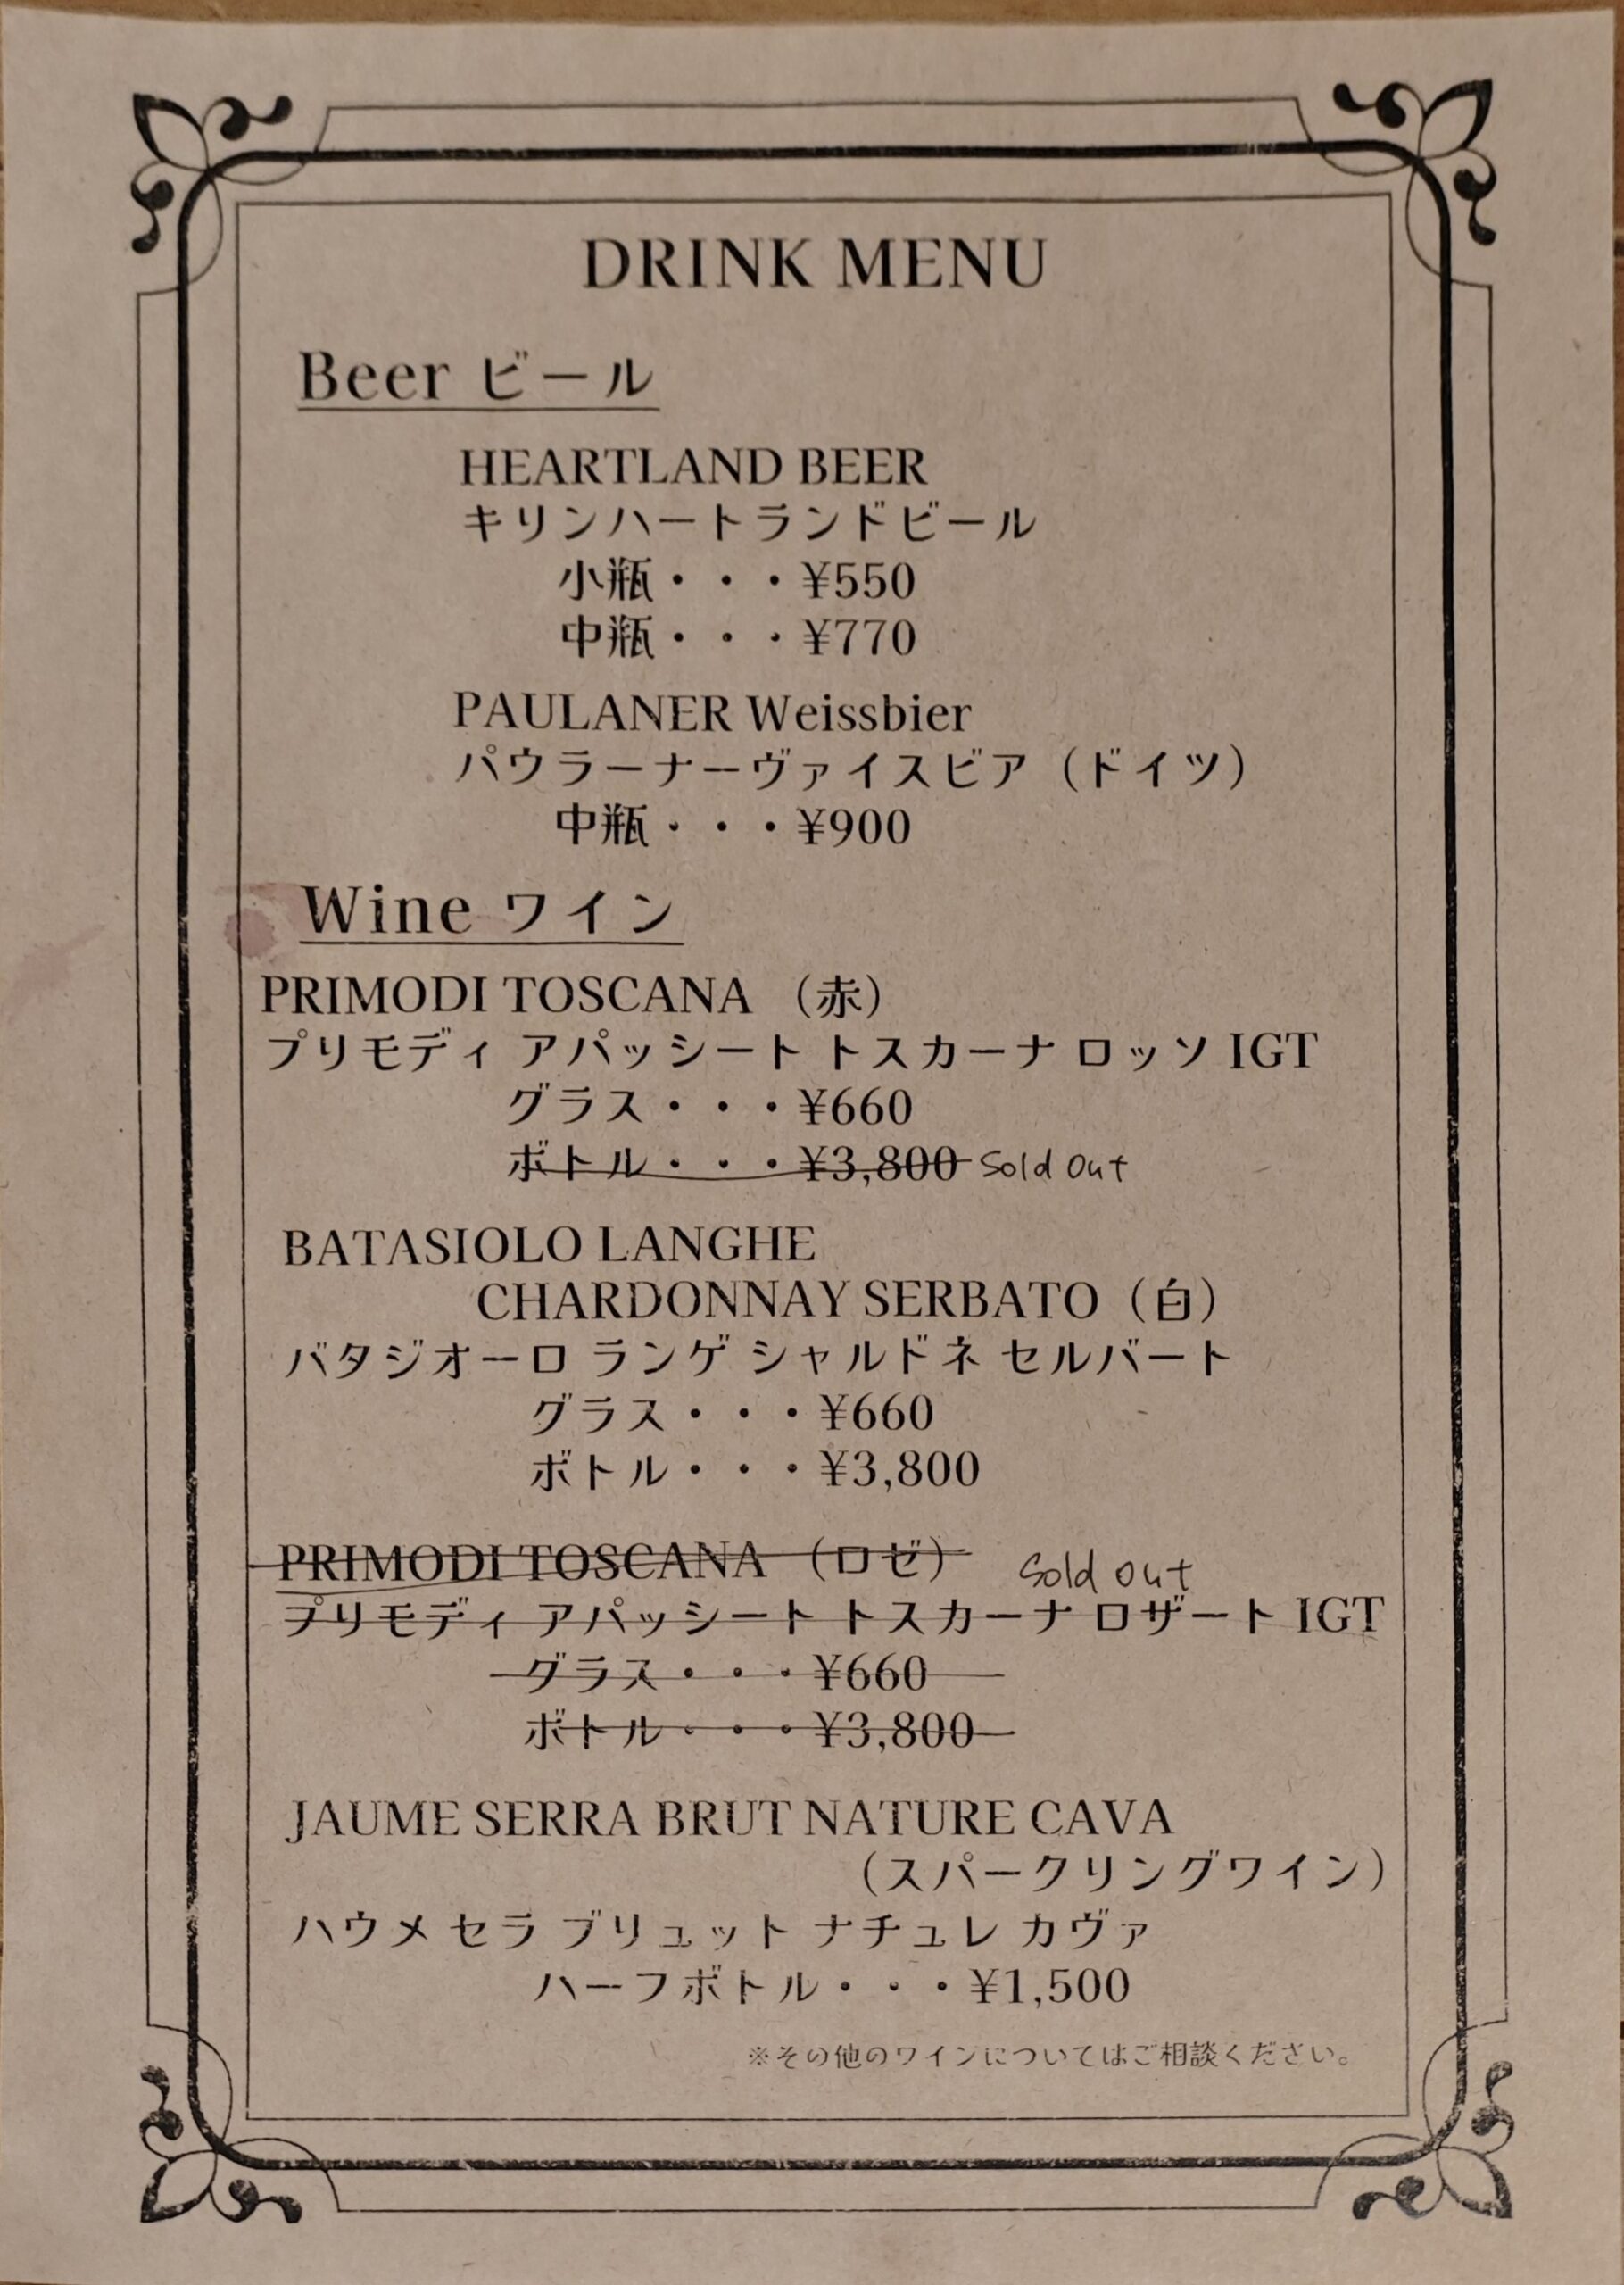 DRINK MENU
Beer ビール
HEARTLAND BEER
キリンハートランドビール
小瓶・・・¥550
中瓶・・・¥770
PAULANER Weissbier
パウラーナーヴァイスビア（ドイツ）
中瓶・・・¥900
Wine ワイン
PRIMODI TOSCANA （赤）
プリモディ アパッシート トスカーナ ロッソ IGT
グラス・・・¥660
ボトル・・・¥3,800 Sold Out
BATASIOLO LANGHE
CHARDONNAY SERBATO（白）
バタジオーロ ランゲ シャルドネ セルバート
グラス・・・¥660
ボトル・・・¥3,800
PRIMODI TOSCANA （ロゼ） Sold out
プリモディ アパッシート トスカーナ ロザート IGT
グラス・・・¥660
ボトル・・・¥3,800
JAUME SERRA BRUT NATURE CAVA
（スパークリングワイン）
ハウメ セラ ブリュット ナチュレ カヴァ
ハーフボトル・・・¥1,500
※その他のワインについてはご相談ください。